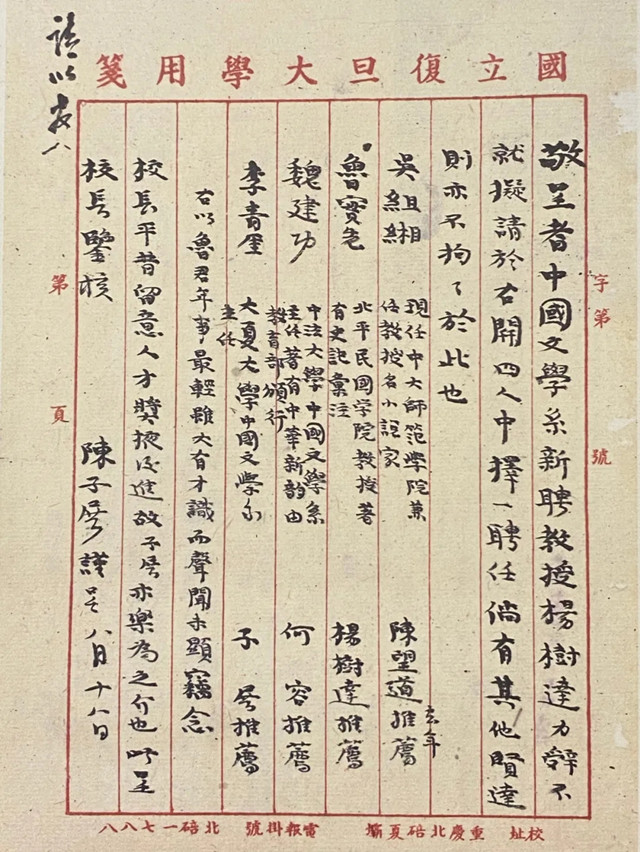 國立復旦大學用箋
字第　號
敬呈者中國文學系新聘教授楊樹達力辭不
就擬請於右開四人中擇一聘任倘有其他賢達
則亦不拘々於此也
吳組緗
現任中大師範學院兼
任教授名小說家
去年
陳望道推薦
魯實先
北平民國学院教授著
有史記彙注
楊樹達推薦
魏建功
中法大學中國文學系
主任著有中華新韵由
教育部頒行
何容推薦
李青崖
大夏大學中國文學系
主任
子展推薦
右以魯君年事最輕雖大有才識而聲聞未顯竊念
校長平昔留意人才獎掖後進故子展亦樂為之介也此呈
校長鑒核
陳子展謹呈八月十八日
第　頁
校址　重慶北碚夏壩　電報掛號　北碚一七八八